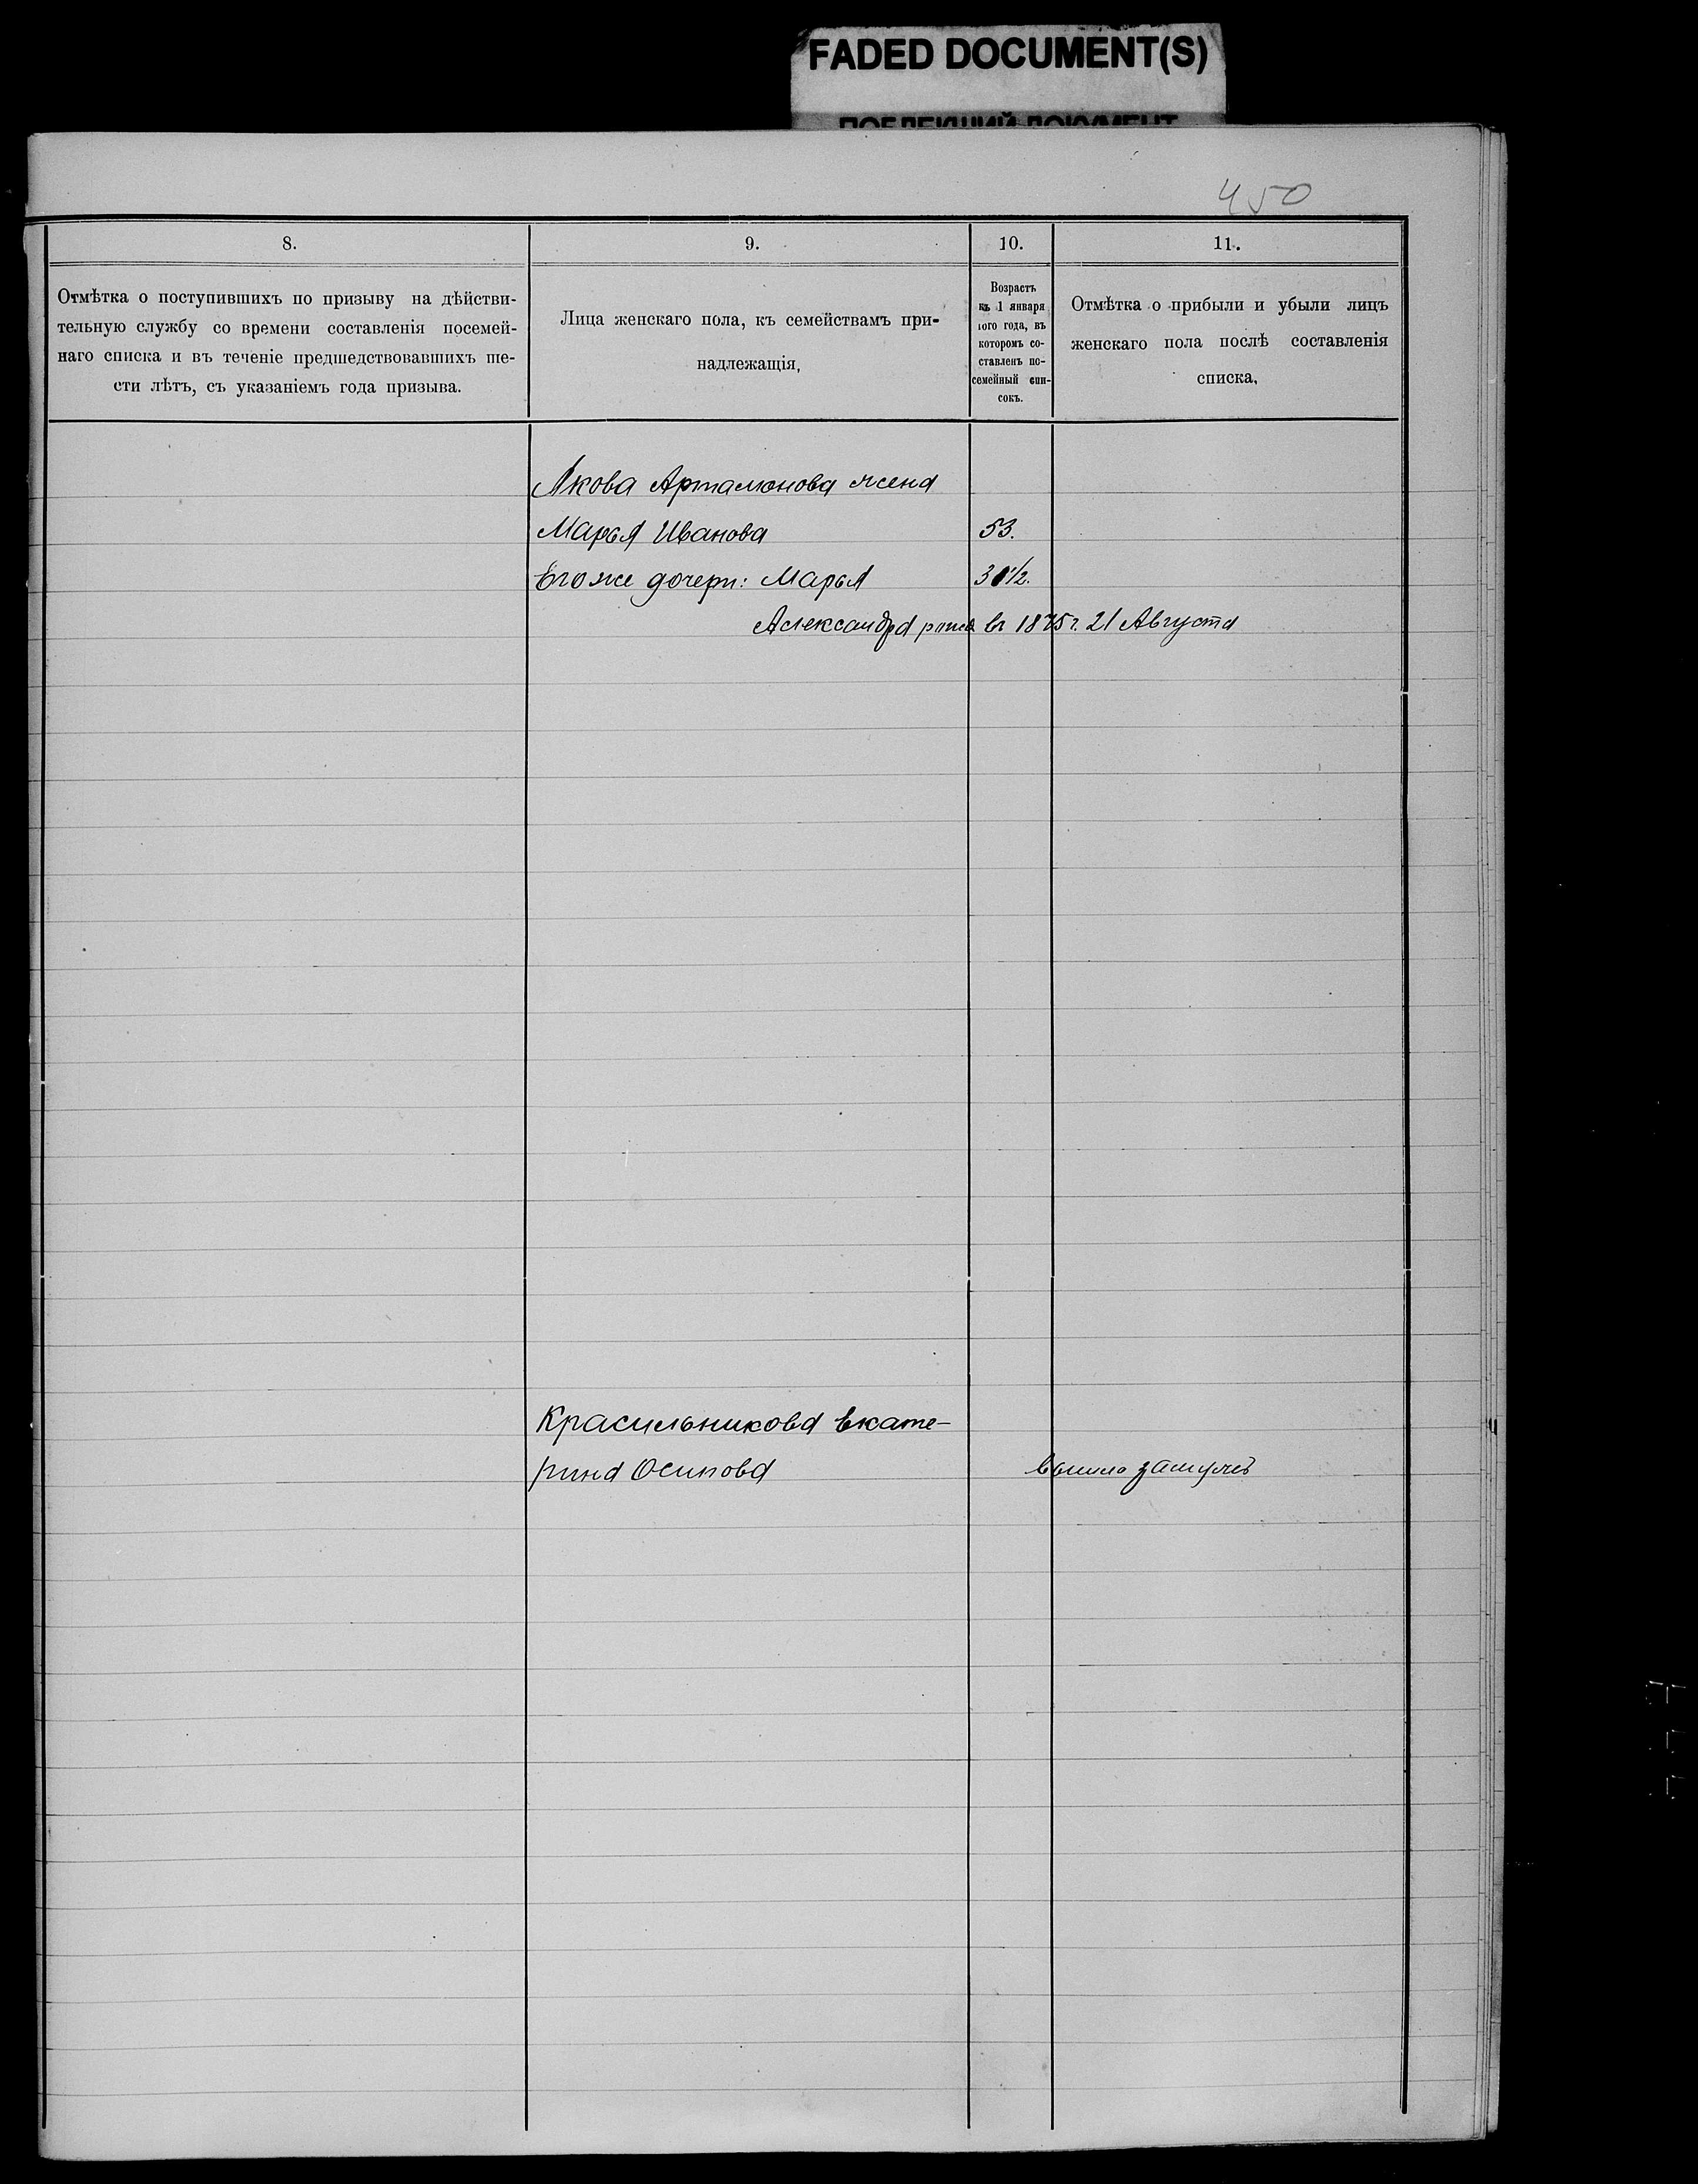 FADED DOCUMENT(S)
ПОБЛЕКШИЙ ДОКУМЕНТ
450
8.
9.
10.
11.
Отмѣтка о поступившихъ по призыву на дѣйстви-
тельную службу со времени составленія посемей-
наго списка и въ теченіе предшедствовавшихъ ше-
сти лѣтъ, съ указаніемъ года призыва.
Лица женскаго пола, къ семействамъ при-
надлежащія,
Возрастъ
къ 1 января
того года, въ
которомъ со-
ставленъ по-
семейный спи-
сокъ.
Отмѣтка о прибыли и убыли лицъ
женскаго пола послѣ составленія
списка,
Якова Артамонова жена
Марья Иванова 53.
Его же дочери: Марья
Александра въ 1875 г. 21 Августа
Красильникова Екате-
рина Осипова вышла замужъ